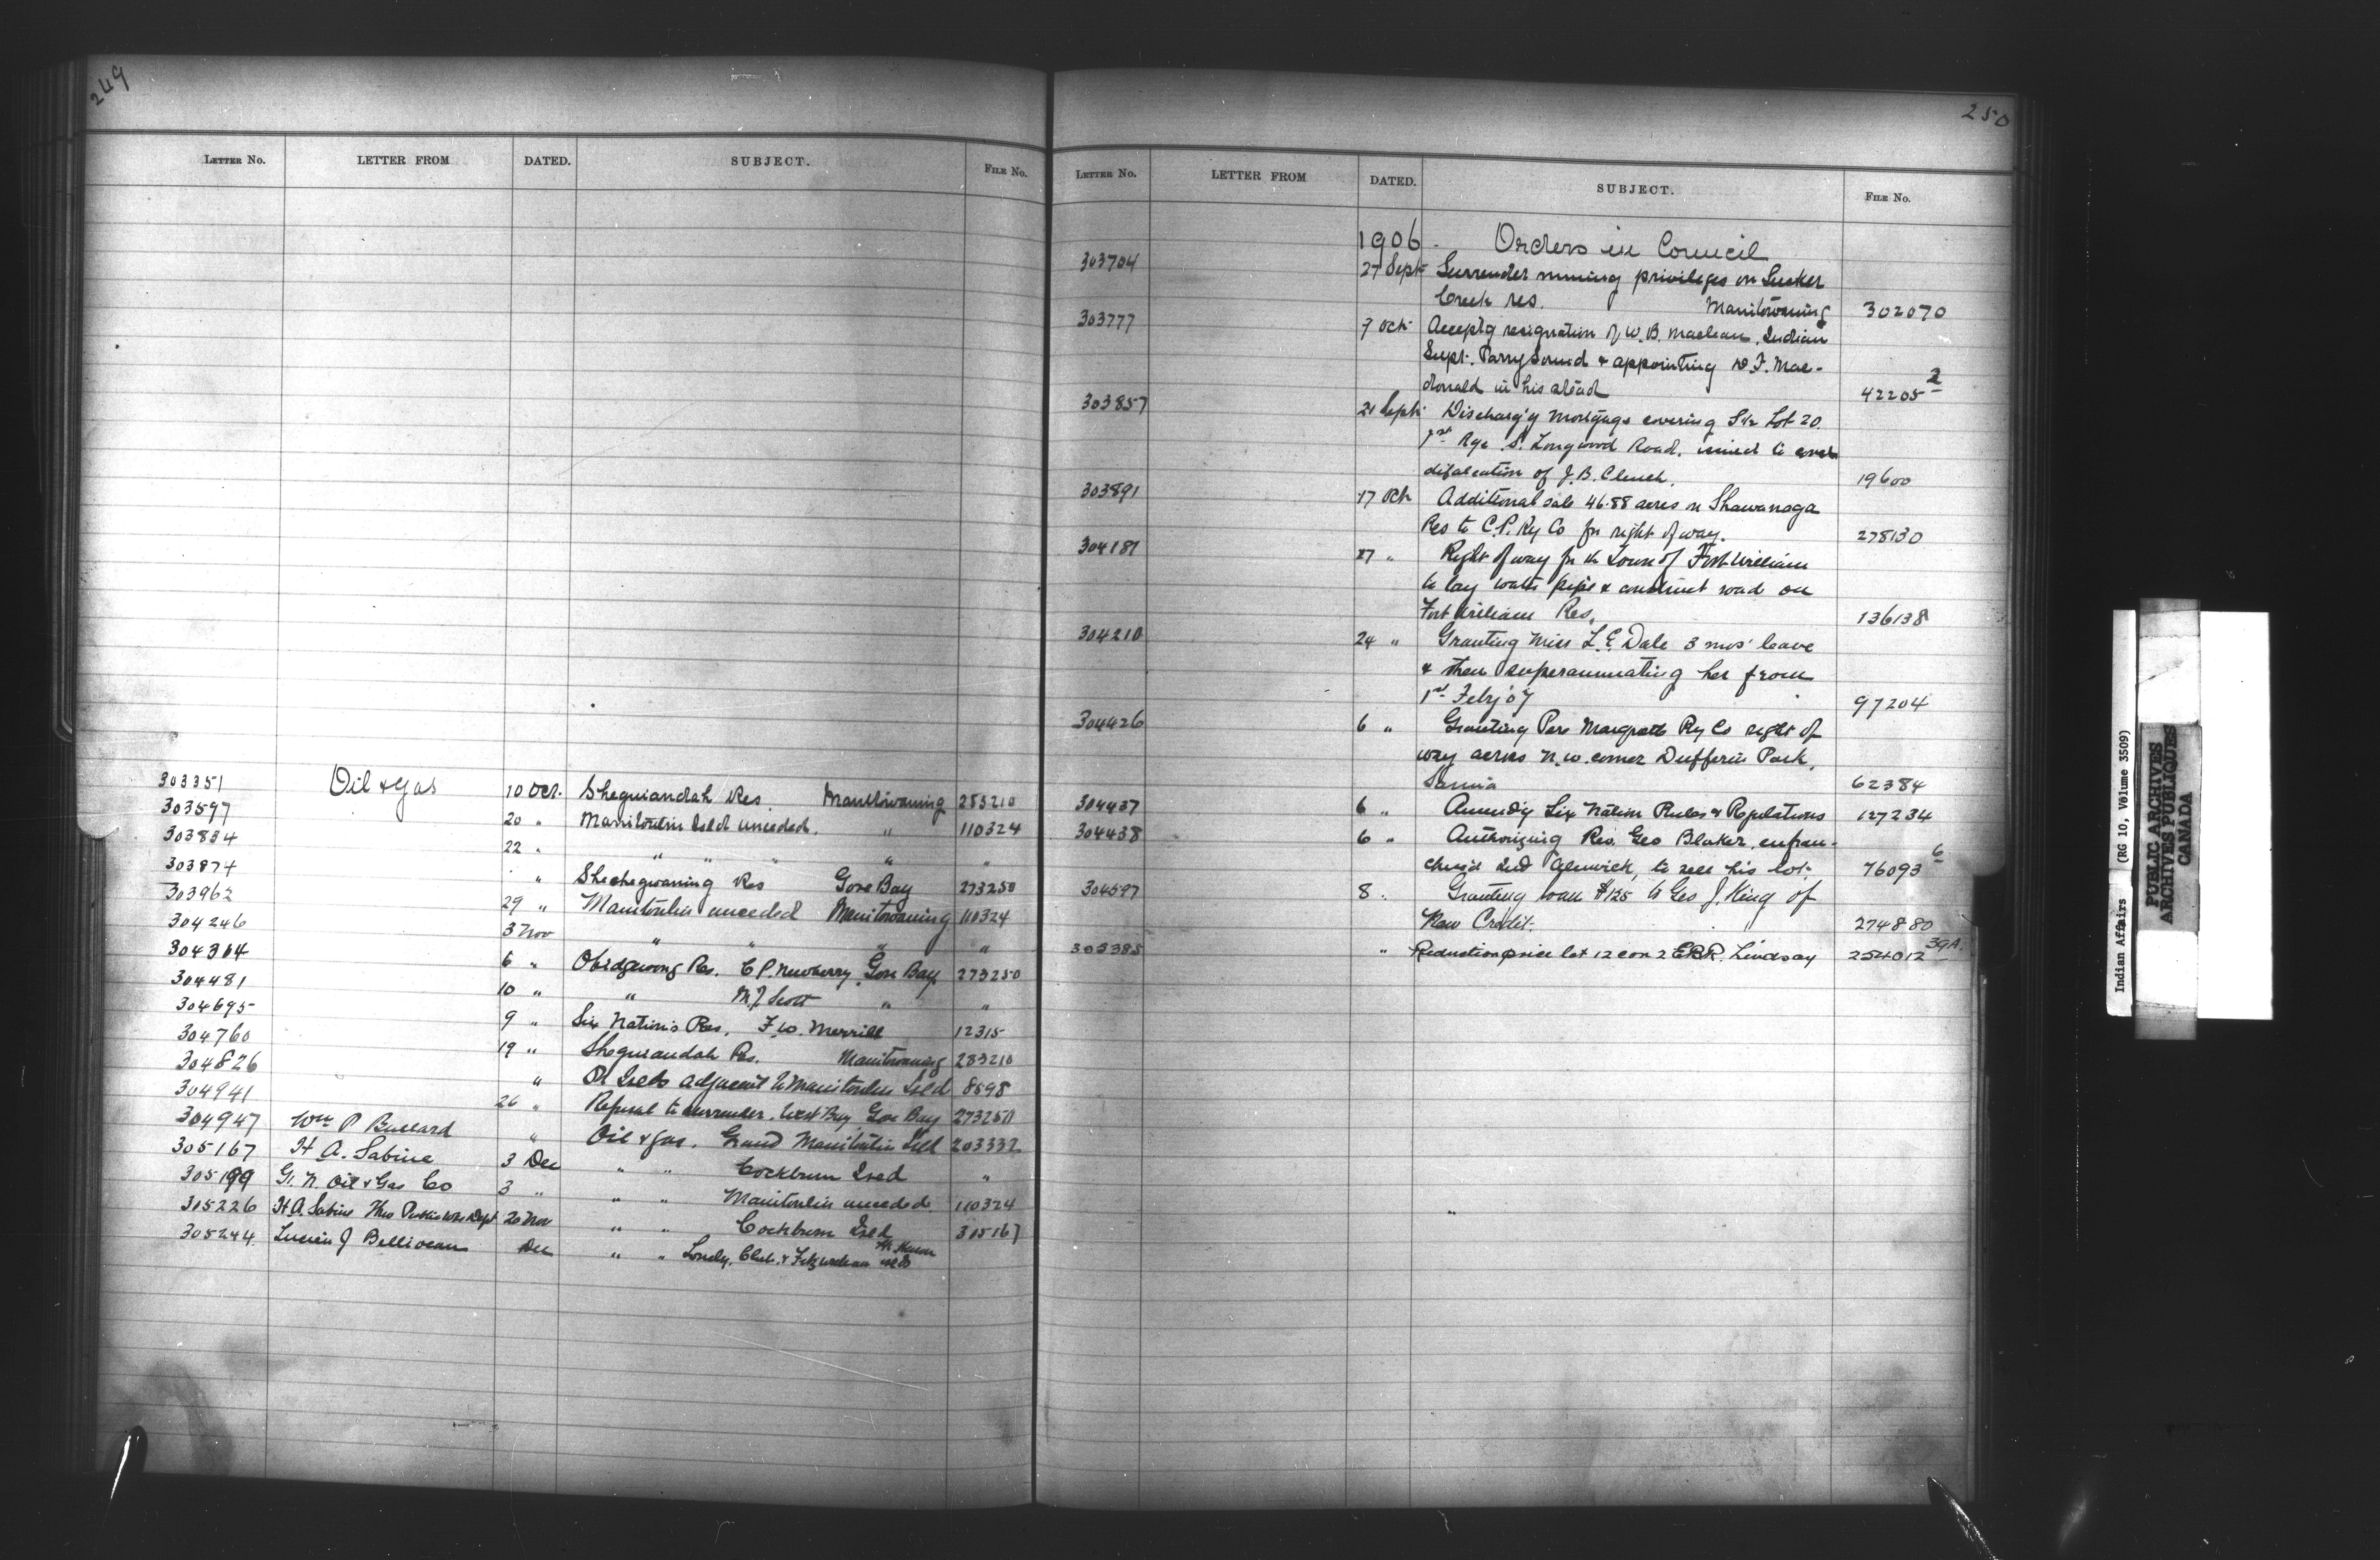 249
LETTER NO. LETTER FROM DATED. SUBJECT. FILE NO.
303351 Oil & Gas 10 Oct. Sheguiandah Res. Manitowaning 283210
303597 20 " Manitoulin Isld unceded. " 110324
303834 22 " " " " " "
303874 " Sheshegwaning Res Gore Bay 273250
303962 29 " Manitoulin unceded Manitowaning 110324
304246 3 Nov " " " "
304304 6 " Obidgewong Res. C P. Newberry Gore Bay 273250
304481 10 " " M.J. Scott " "
304695 9 " Six Nations Res. F.W. Merrill 12315
304760 19 " Sheguiandah Res. Manitowaning 283210
304826 " Isds adjacent to Manitoulin Isld 8598
304941 26 " Refusal to surrender. West Bay Gore Bay 273250
304947 Wm P Bullard " Oil & gas. Grand Manitoulin Isld 203332
305167 H A. Sabine 3 Dec " " Cockburn Isld "
305199 G. N. Oil & Gas Co 3 " " " Manitoulin unceded 110324
305226 H A. Sabine Thro Public Wks Dept 20 Nov " " Cockburn Isld 305167
305244 Lucien J Belliveau Dec " " Lonely, Club, & Fitzwilliam Islds
250
LETTER NO. LETTER FROM DATED. SUBJECT. FILE NO.
1906. Orders in Council
303704 27 Sept Surrender mining privileges on Sucker
Creek res. Manitowaning 302070
303777 7 Oct. Acceptg resignation of W. B. Maclean, Indian
Supt. Parry Sound & appointing D. F. Mac-
donald in his stead 42205 2
303857 21 Sept. Discharg'g Mortgage covering S½ Lot 20.
1st Rge S. Longwood Road, issued to cover
defalcation of J. B. Clench. 19600
303891 17 Oct Additional sale 46.88 acres on Shawanaga
Res to C.P. Ry Co for right of way. 278130
304181 27 " Right of way for the Town of Fort William
to lay water pipe & construct road on
Fort William Res. 136138
304210 24 " Granting Miss L. E. Dale 3 mos' leave
& then superannuating her from
1st Feby '07 97204
304426 6 " Granting Pere Marquette Ry Co right of
way across N.W. corner Dufferin Park,
Sarnia 62384
304437 6 " Amendg Six Nation Rules & Regulations 127234
304438 6 " Authorizing Rev. Geo Blaker, enfran-
chis'd Ind Alnwick, to sell his lot. 76093 6
304597 8 " Granting loan $125 to Geo J. King of
New Credit. 274880
305385 " Reduction price lot 12 con 2 E.B.R. Lindsay 254012 39A.
Indian Affairs (RG 10, Volume 3509)
PUBLIC ARCHIVES
ARCHIVES PUBLIQUES
CANADA